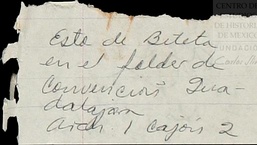 CENTRO DE
DE HISTORI
DE MEXICO
Este de Beteta
en el folder de
Convención Gua-
dalajara
Arch. 1 cajón 2